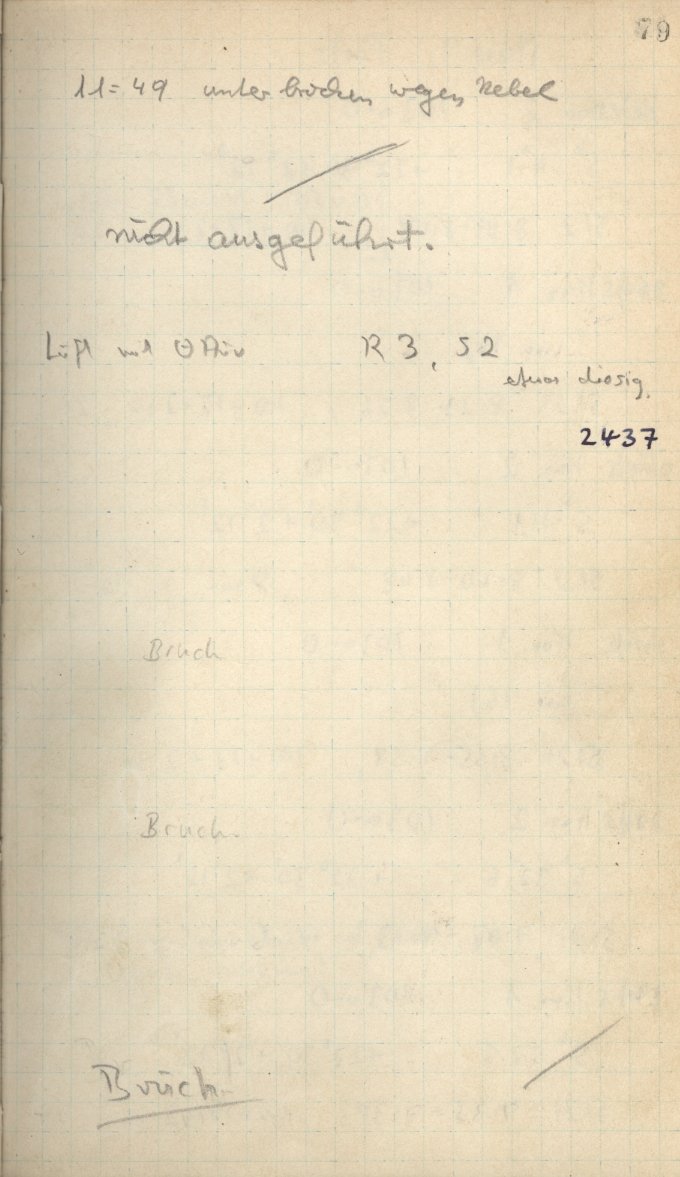 79
11=49 unterbrochen wegen Nebel
nicht ausgeführt.
Luft mit R 3, S 2
etwas diesig.
2437
Bruch
Bruch.
Bruch.